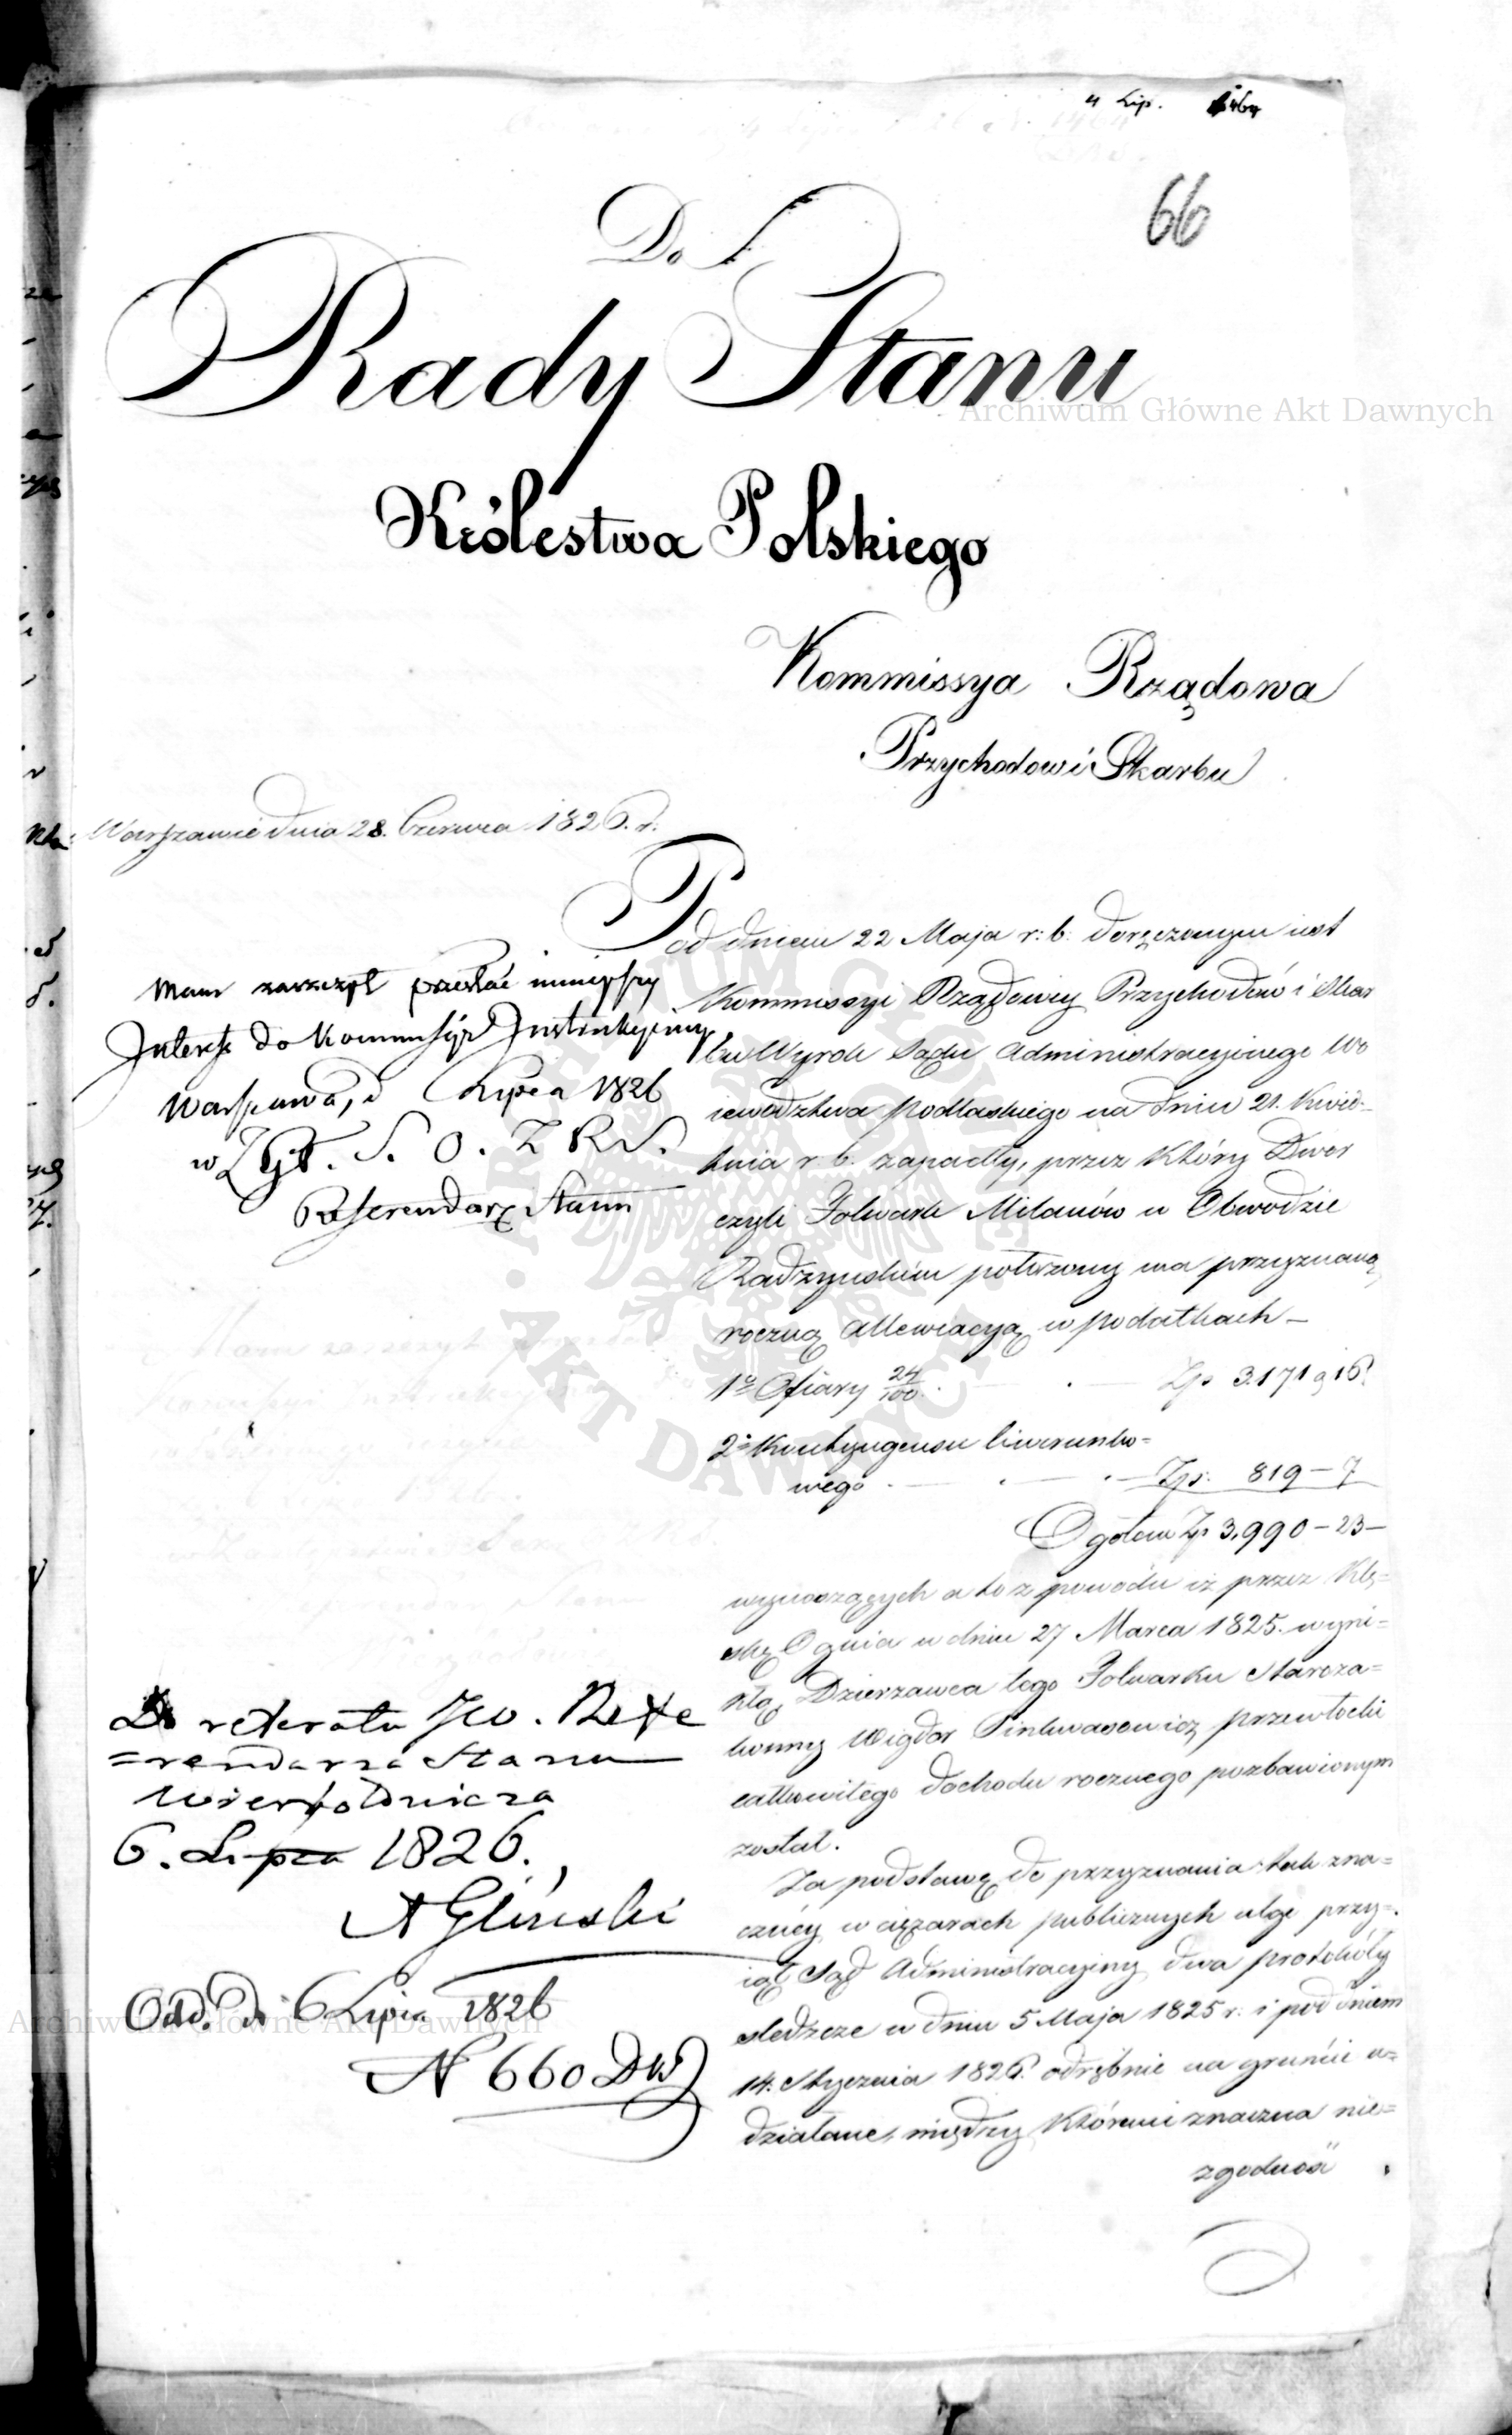 4 Lip.
66
Do
Rady Stanu
Archiwum Główne Akt Dawnych
Królestwa Polskiego
Kommissya Rządowa
Przychodów i Skarbu
Warszawie dnia 28. Czerwca 1826. r.
Pod dniem 22 Maja r: b: doręczonym iest
Kommissyi Rządowey Przychodów i Skar
bu Wyrok Sądu Administracyinego Wo
iewództwa Podlaskiego na dniu 21. Kwie-
tnia r. b. zapadły, przez który Dwór
czyli Folwark Milanów w Obwodzie
Radzyńskim położony ma przyznaną
roczną allewiacyą w podatkach –
1o Ofiary 24/100 . — . — Zp 3.171 g 16
2o Kontyngensu liwerunko=
wego . — . — . — Zp. 819 – 7
Ogółem Zp 3.990 – 23 –
wynoszących a to z powodu iż przez klę=
skę Ognia w dniu 27 Marca 1825. wyni=
kłą, Dzierzawca tego Folwarku Staroza=
konny Wigdor Pinkwasowicz przewłocki
całkowitego dochodu rocznego pozbawionym
został.
Za podstawę do przyznania tak zna=
czney w ciężarach publicznych ulgi przy=
iął Sąd Administracyiny dwa protokóły
śledcze w dniu 5 Maja 1825 r. i pod dniem
14. Stycznia 1826. odrębnie na gruncie u=
działane, między któremi znaczna nie=
zgodność
Mam zaszczyt przesłać ninieyszy
Interess do Kommissyi Instrukcyiney
Warszawa, d Lipca 1826
w Zst. S. O. Z R S.
Referendarz Stanu
Do referatu JW. Refe
=rendarza Stanu
6. Lipca 1826.
A Gliński
Odd. d. 6 Lipca 1826
N 660 DW
Archiwum Główne Akt Dawnych
ARCHIWUM GŁÓWNE · AKT DAWNYCH ·